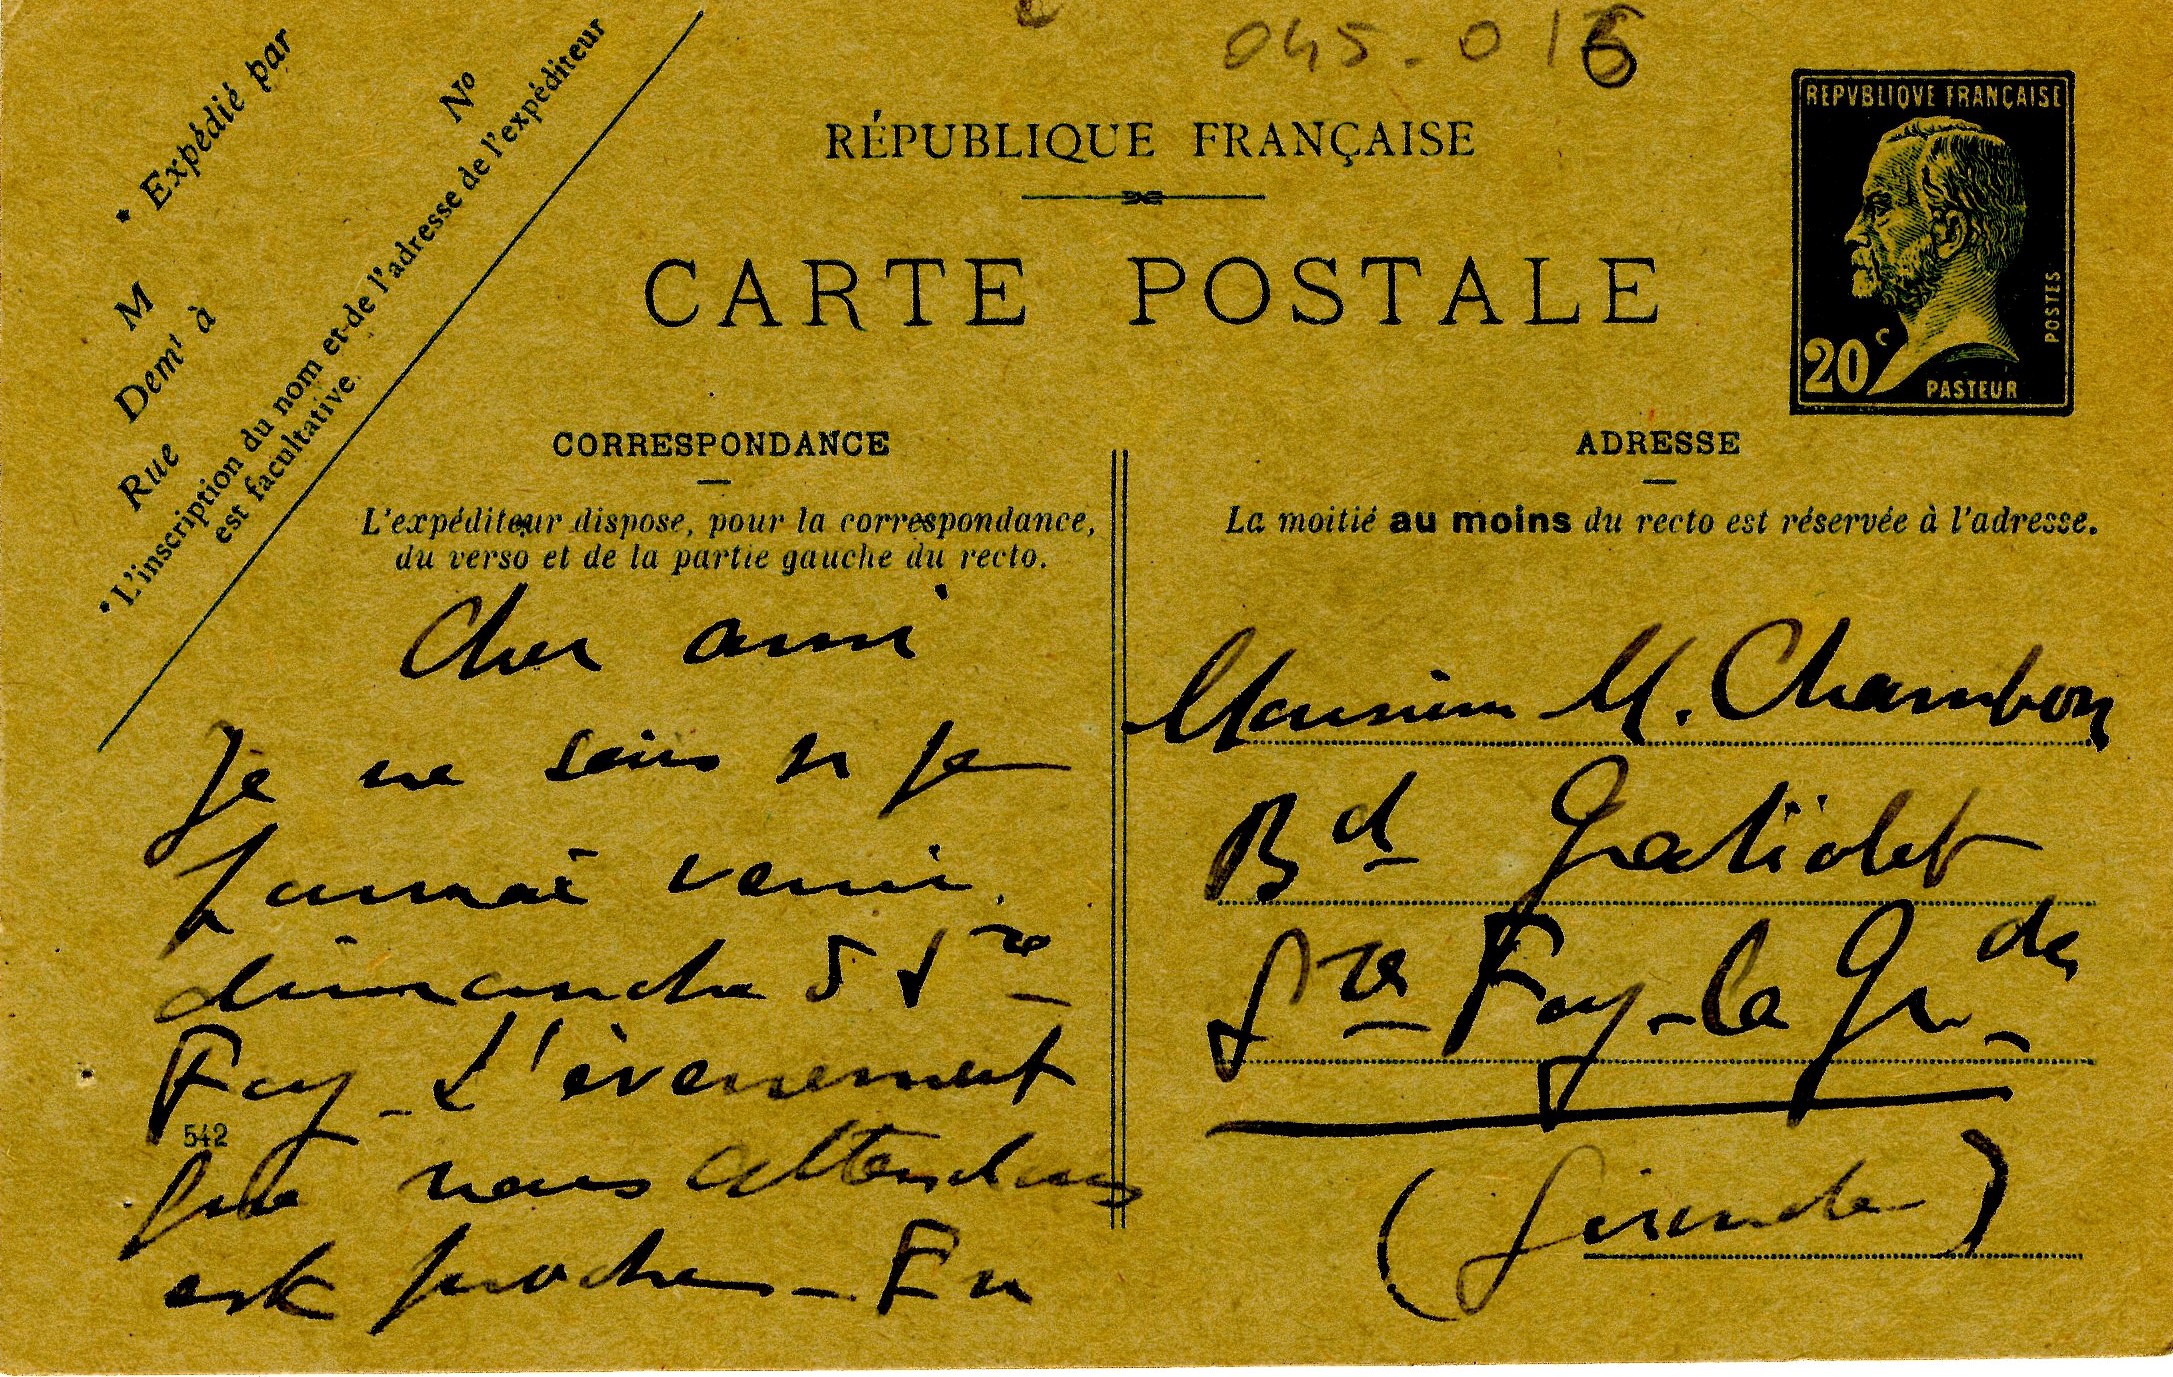 045-016
* Expédié par
M
Demt à
Rue
No
* L'inscription du nom et de l'adresse de l'expéditeur
est facultative.
RÉPUBLIQUE FRANÇAISE
CARTE POSTALE
REPVBLIQVE FRANÇAISE
POSTES
20 c
PASTEUR
CORRESPONDANCE
L'expéditeur dispose, pour la correspondance,
du verso et de la partie gauche du recto.
Cher ami
Je ne sais si je
pourrai venir
dimanche à Ste
Foy - L'évènement
542
que nous attendons
est proche - En
ADRESSE
La moitié au moins du recto est réservée à l'adresse.
Monsieur M. Chambon
Bd Gratiolet
Ste Foy-la Grde
(Gironde)